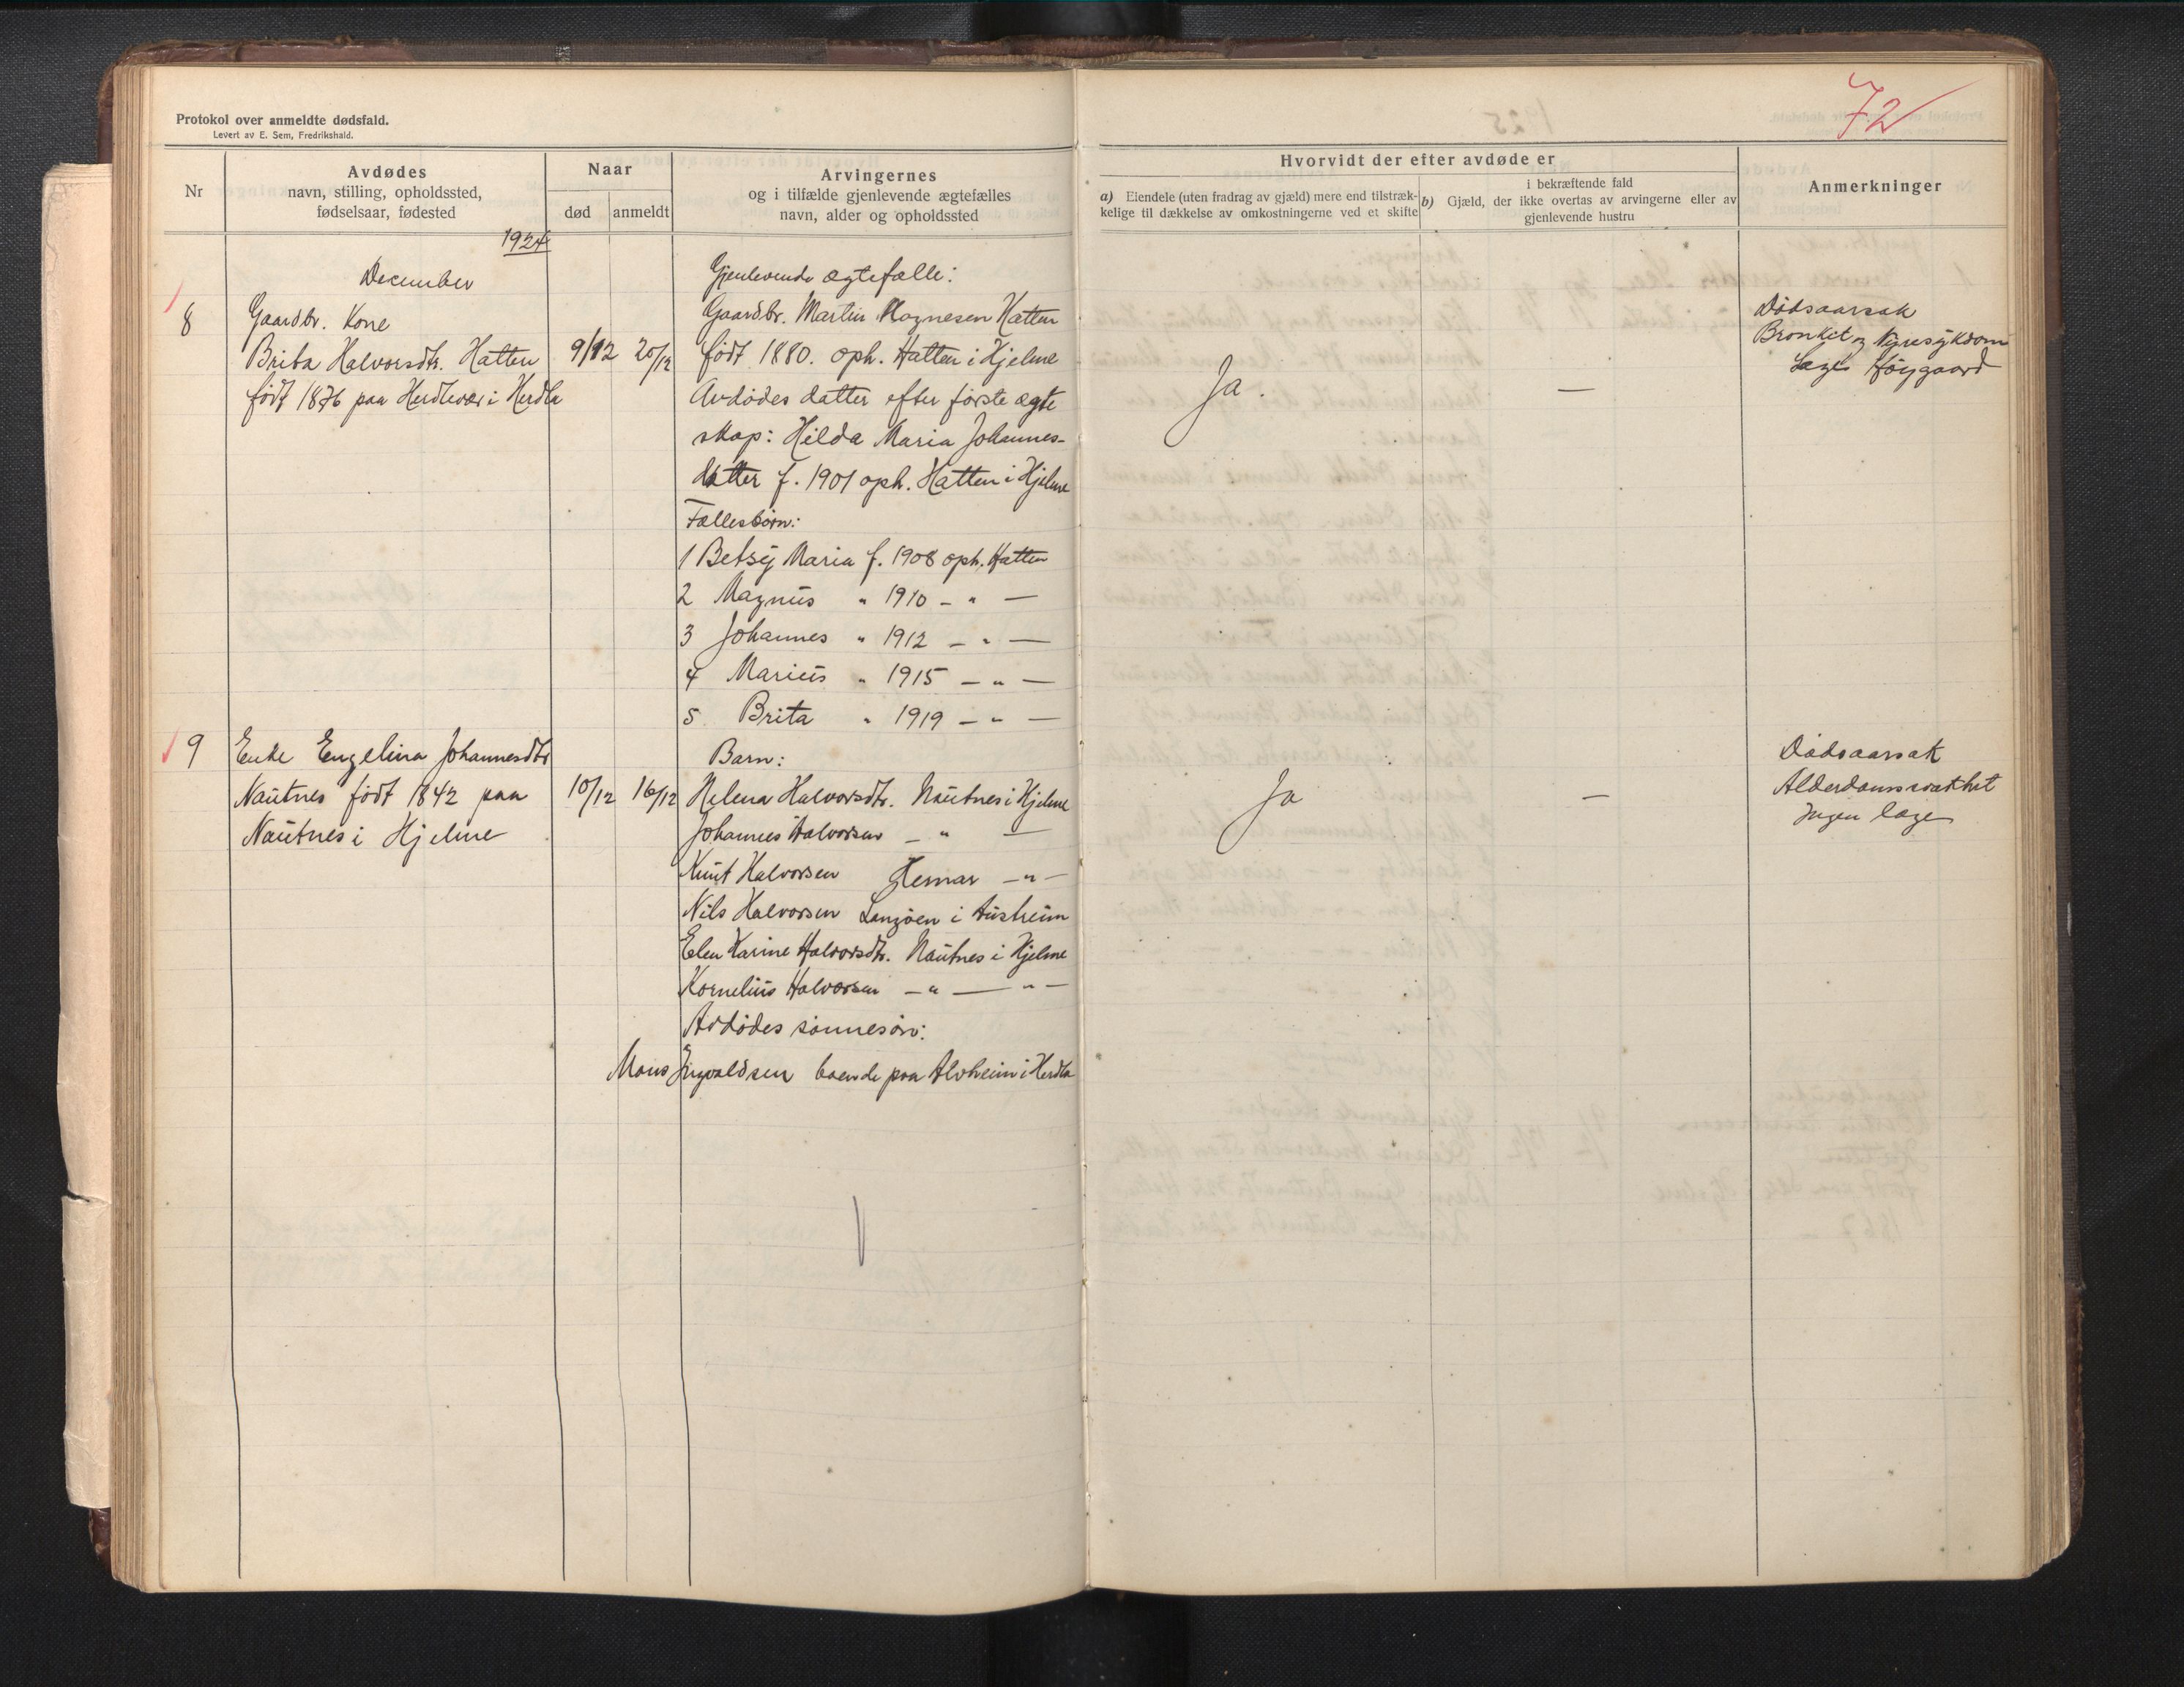 Protokol over anmeldte dødsfald.
Levert av E. Sem, Fredrikshald.
Nr
Avdødes
navn, stilling, opholdssted,
fødselsaar, fødested
Naar
død
anmeldt
Arvingernes
og i tilfælde gjenlevende ægtefælles
navn, alder og opholdssted
1924
December
8
Gaardbr. Kone
Brita Halvorsdtr. Hatten
født 1876 paa Herdlevær i Herdla
9/12
20/12
Gjenlevende ægtefælle:
Gaardbr. Martin Magnesen Hatten
født 1880. oph. Hatten i Hjelme
Avdødes datter efter første ægte
skap: Hilda Maria Johannes-
datter f. 1901 oph. Hatten i Hjelme
Fællesbørn:
1 Betsy Maria f. 1908 oph. Hatten
2 Magnus " 1910 - " -
3 Johannes " 1912 - " -
4 Marius " 1915 - " -
5 Brita " 1919 - " -
9
Enke Engelina Johannesdtr
Nautnes født 1842 paa
Nautnes i Hjelme
10/12
16/12
Barn:
Helena Halvorsdtr. Nautnes i Hjelme
Johannes Halvorsen - " -
Knut Halvorsen Hernar - " -
Nils Halvorsen Langøen i Austreim
Elen Karine Halvorsdtr. Nautnes i Hjelme
Kornelius Halvorsen - " - " -
Avdødes sønnesøn:
Mons Ingvaldsen boende paa Alvheim i Herdla
72
Hvorvidt der efter avdøde er
a) Eiendele (uten fradrag av gjæld) mere end tilstræk-
kelige til dækkelse av omkostningerne ved et skifte
i bekræftende fald
b) Gjæld, der ikke overtas av arvingerne eller av
gjenlevende hustru
Anmerkninger
Ja.
—
Dødsaarsak
Bronkit og Nyresykdom
Læge Høygaard
Ja
—
Dødsaarsak
Alderdomssvakhet
Ingen læge